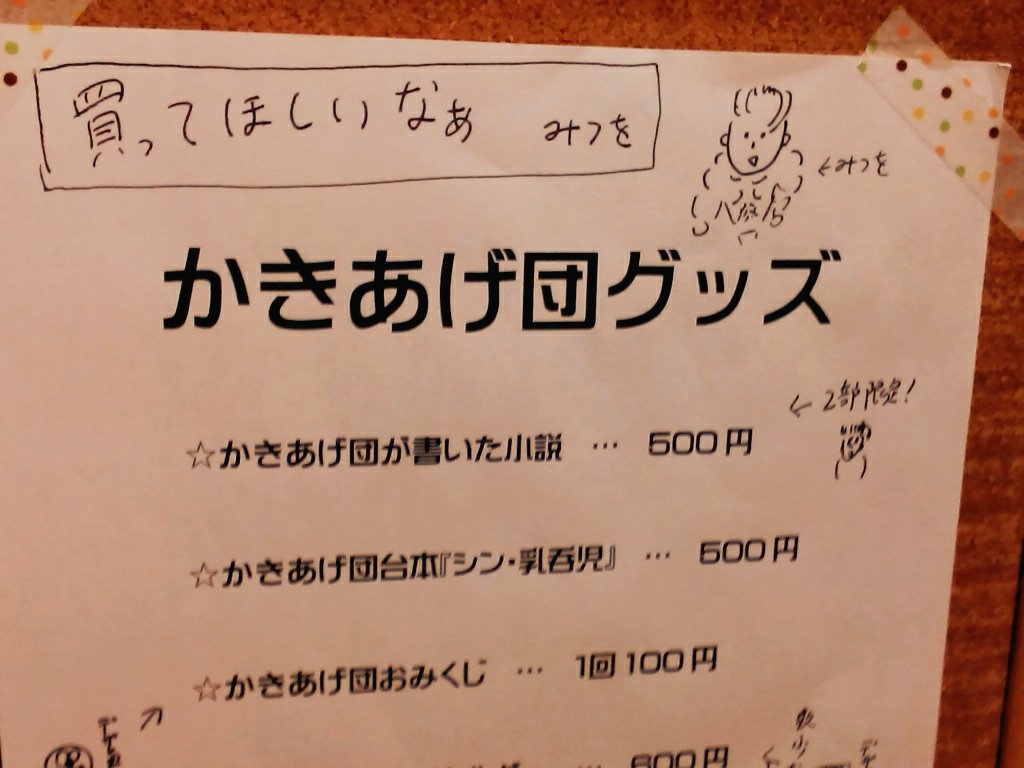 買ってほしいなぁ みつを
←みつを
かきあげ団グッズ
←2部限定!
☆かきあげ団が書いた小説 … 500円
☆かきあげ団台本『シン・乳呑児』 … 500円
☆かきあげ団おみくじ … 1回100円
… 600円